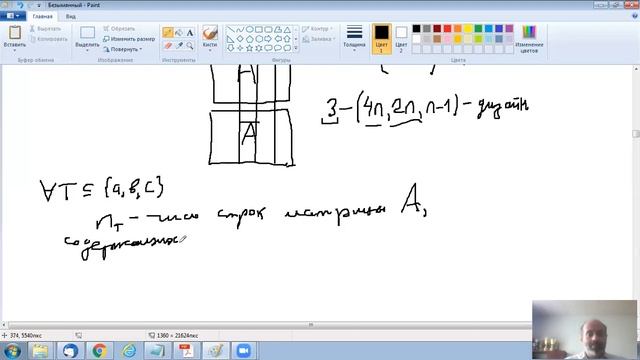 Безымянный - Paint
Главная
Вид
Вставить
Выделить
Обрезать
Изменить размер
Повернуть
Кисти
Контур
Заливка
Толщина
Цвет 1
Цвет 2
Изменение цветов
Буфер обмена
Изображение
Инструменты
Фигуры
Цвета
A
A
3-(4n, 2n, n-1)-дизайн
∀T ⊆ {a, b, c}
n_T - число строк матрицы A,
содержащих
374, 5540пкс
1360 × 21624пкс
100%